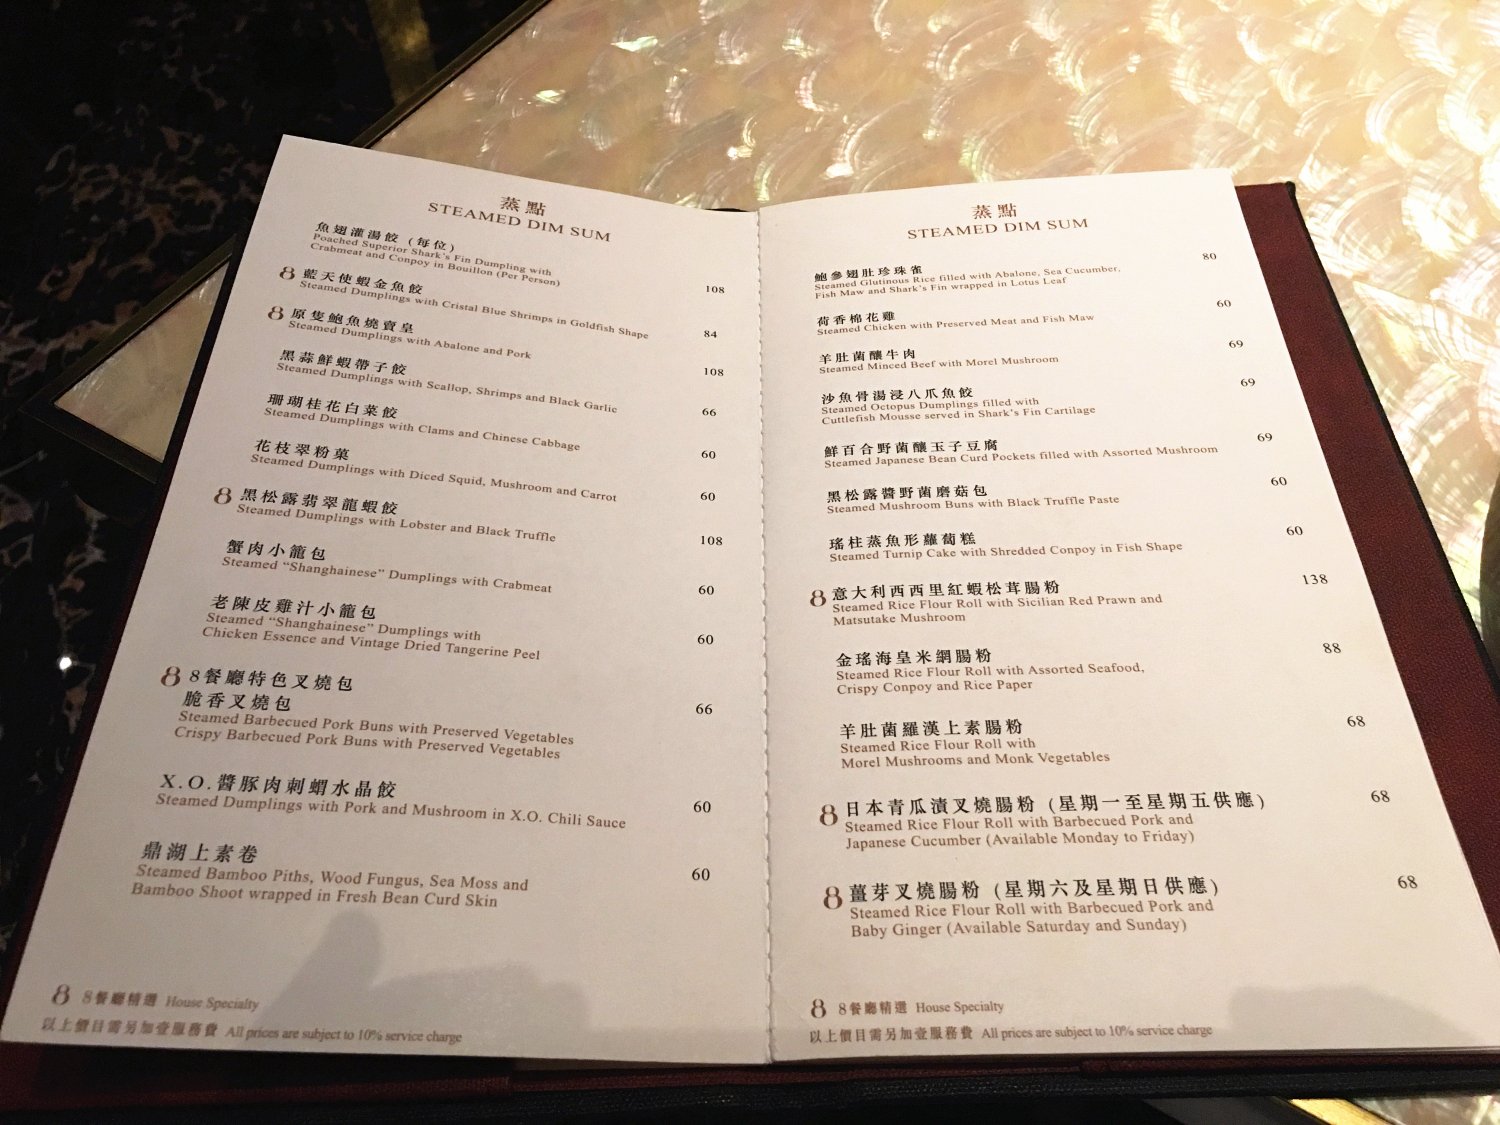 蒸點
STEAMED DIM SUM
魚翅灌湯餃 (每位)
Poached Superior Shark's Fin Dumpling with
Crabmeat and Conpoy in Bouillon (Per Person)
108
8 藍天使蝦金魚餃
Steamed Dumplings with Cristal Blue Shrimps in Goldfish Shape
84
8 原隻鮑魚燒賣皇
Steamed Dumplings with Abalone and Pork
108
黑蒜鮮蝦帶子餃
Steamed Dumplings with Scallop, Shrimps and Black Garlic
66
珊瑚桂花白菜餃
Steamed Dumplings with Clams and Chinese Cabbage
60
花枝翠粉菓
Steamed Dumplings with Diced Squid, Mushroom and Carrot
60
8 黑松露翡翠龍蝦餃
Steamed Dumplings with Lobster and Black Truffle
108
蟹肉小籠包
Steamed "Shanghainese" Dumplings with Crabmeat
60
老陳皮雞汁小籠包
Steamed "Shanghainese" Dumplings with
Chicken Essence and Vintage Dried Tangerine Peel
60
8 8餐廳特色叉燒包
脆香叉燒包
Steamed Barbecued Pork Buns with Preserved Vegetables
Crispy Barbecued Pork Buns with Preserved Vegetables
66
X.O.醬豚肉刺蝟水晶餃
Steamed Dumplings with Pork and Mushroom in X.O. Chili Sauce
60
鼎湖上素卷
Steamed Bamboo Piths, Wood Fungus, Sea Moss and
Bamboo Shoot wrapped in Fresh Bean Curd Skin
60
8 8餐廳精選 House Specialty
以上價目需另加壹服務費 All prices are subject to 10% service charge
蒸點
STEAMED DIM SUM
鮑參翅肚珍珠雀
Steamed Glutinous Rice filled with Abalone, Sea Cucumber,
Fish Maw and Shark's Fin wrapped in Lotus Leaf
80
荷香棉花雞
Steamed Chicken with Preserved Meat and Fish Maw
60
羊肚菌釀牛肉
Steamed Minced Beef with Morel Mushroom
69
沙魚骨湯浸八爪魚餃
Steamed Octopus Dumplings filled with
Cuttlefish Mousse served in Shark's Fin Cartilage
69
鮮百合野菌釀玉子豆腐
Steamed Japanese Bean Curd Pockets filled with Assorted Mushroom
69
黑松露醬野菌磨菇包
Steamed Mushroom Buns with Black Truffle Paste
60
瑤柱蒸魚形蘿蔔糕
Steamed Turnip Cake with Shredded Conpoy in Fish Shape
60
8 意大利西西里紅蝦松茸腸粉
Steamed Rice Flour Roll with Sicilian Red Prawn and
Matsutake Mushroom
138
金瑤海皇米網腸粉
Steamed Rice Flour Roll with Assorted Seafood,
Crispy Conpoy and Rice Paper
88
羊肚菌羅漢上素腸粉
Steamed Rice Flour Roll with
Morel Mushrooms and Monk Vegetables
68
8 日本青瓜漬叉燒腸粉 (星期一至星期五供應)
Steamed Rice Flour Roll with Barbecued Pork and
Japanese Cucumber (Available Monday to Friday)
68
8 薑芽叉燒腸粉 (星期六及星期日供應)
Steamed Rice Flour Roll with Barbecued Pork and
Baby Ginger (Available Saturday and Sunday)
68
8 8餐廳精選 House Specialty
以上價目需另加壹服務費 All prices are subject to 10% service charge